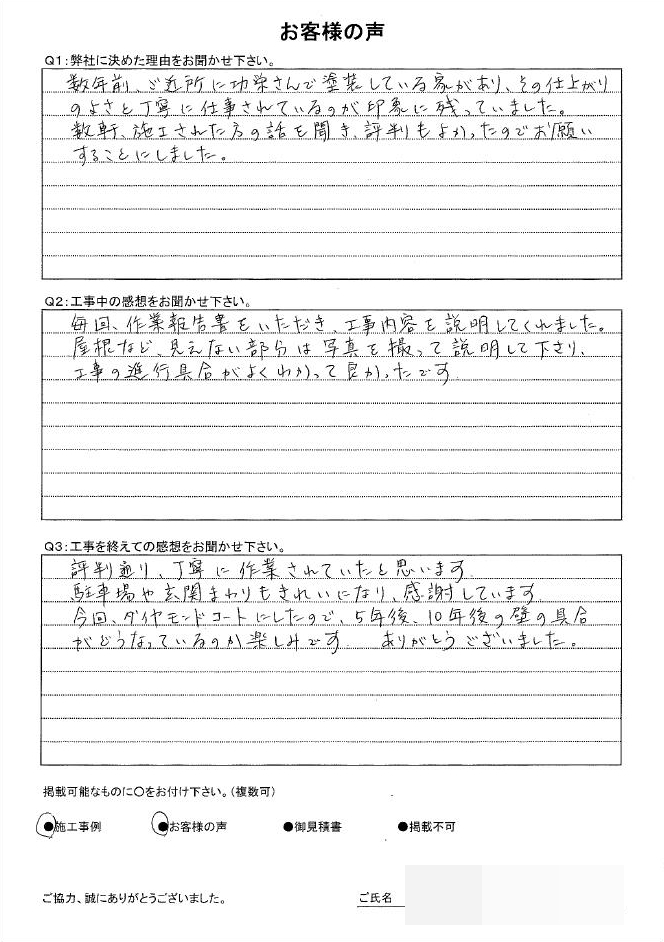 お客様の声
Q1：弊社に決めた理由をお聞かせ下さい。
数年前、ご近所に功栄さんで塗装している家があり、その仕上がり
のよさと丁寧に仕事されているのが印象に残っていました。
数軒、施工された方の話を聞き、評判もよかったのでお願い
することにしました。
Q2：工事中の感想をお聞かせ下さい。
毎回、作業報告書をいただき、工事内容を説明してくれました。
屋根など、見えない部分は写真を撮って説明して下さり、
工事の進行具合がよくわかって良かったです
Q3：工事を終えての感想をお聞かせ下さい。
評判通り、丁寧に作業されていたと思います
駐車場や玄関まわりもきれいになり、感謝しています
今回、ダイヤモンドコートにしたので、5年後、10年後の壁の具合
がどうなっているのか楽しみです ありがとうございました。
掲載可能なものに〇をお付け下さい。（複数可）
●施工事例 ●お客様の声 ●御見積書 ●掲載不可
ご協力、誠にありがとうございました。 ご氏名